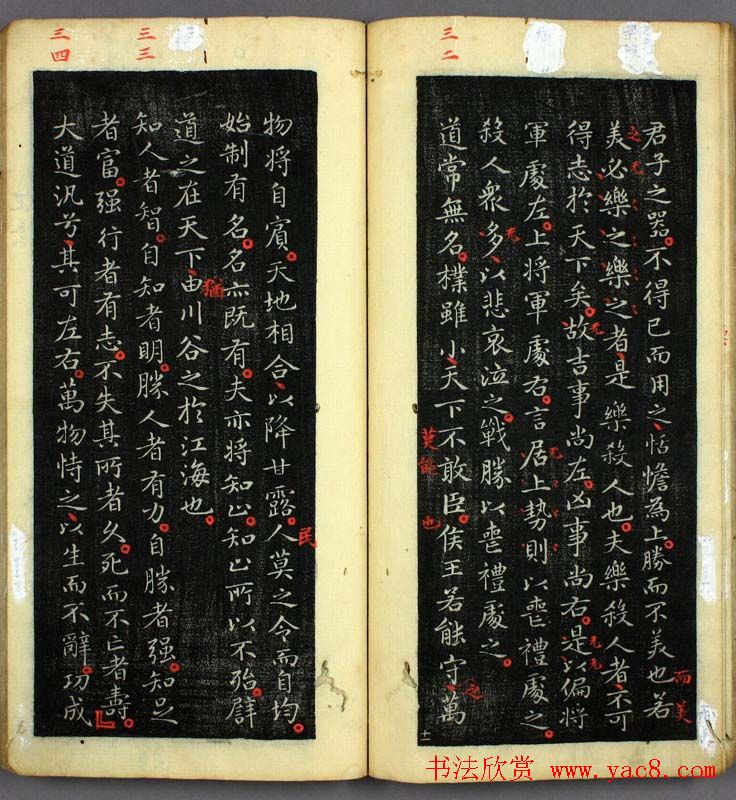 君子之器不得已而用之恬憺為上勝而不美也若
美必樂之樂之者是樂殺人也夫樂殺人者不可
得志於天下矣故吉事尚左凶事尚右是以偏將
軍處左上將軍處右言居上勢則以喪禮處之
殺人衆多以悲哀泣之戰勝以喪禮處之
道常無名樸雖小天下不敢臣侯王若能守萬
物将自賓天地相合以降甘露人莫之令而自均
始制有名名亦既有夫亦将知止知止所以不殆譬
道之在天下由川谷之於江海也
知人者智自知者明勝人者有力自勝者强知足
者富强行者有志不失其所者久死而不亡者壽
大道汎兮其可左右萬物恃之以生而不辭功成
三二
三三
三四
之
无
无
无
无
无无
而美
莫能
也
之
民
猶
十一
书法欣赏 www.yac8.com